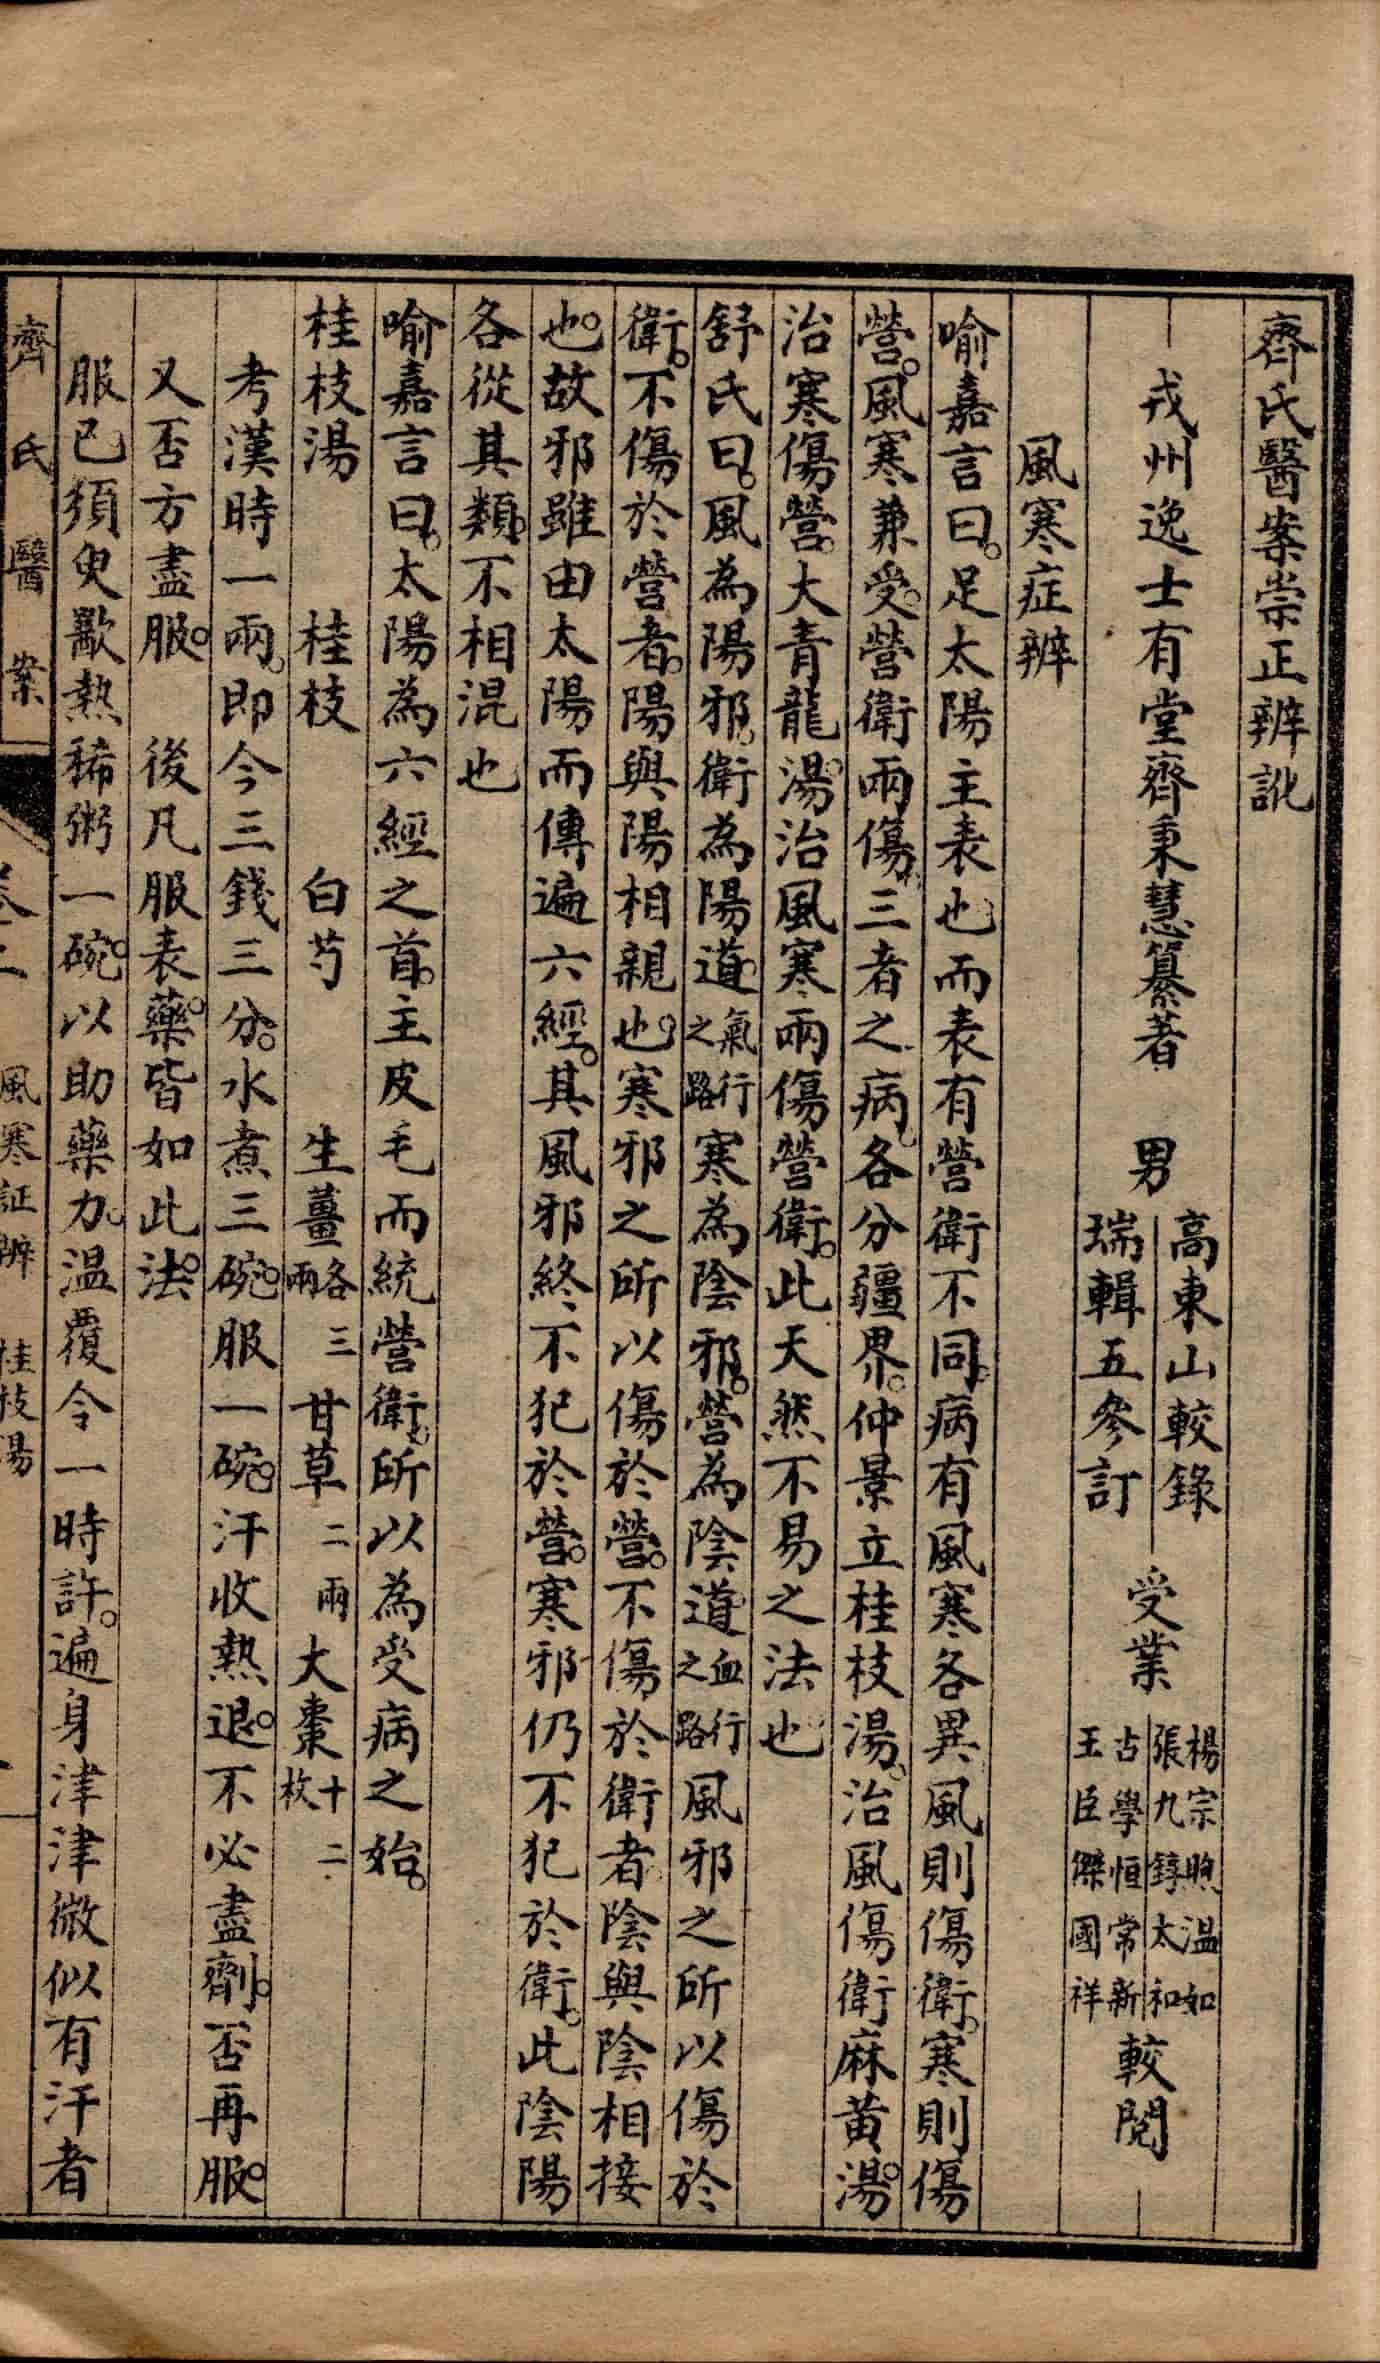 齊氏醫案崇正辨訛
戎州逸士有堂齊秉慧纂著　男　高東山較錄　瑞輯五參訂　受業　楊宗煦　溫如　張九錞　太和　古學恒　常新　王臣傑　國祥　較閱
風寒症辨
喻嘉言曰。足太陽主表也而表有營衛不同。病有風寒各異風則傷衛。寒則傷
營。風寒兼受。營衛兩傷。三者之病。各分疆界。仲景立桂枝湯。治風傷衛麻黃湯。
治寒傷營。大青龍湯。治風寒兩傷營衛。此天然不易之法也
舒氏曰。風為陽邪。衛為陽道。氣行之路寒為陰邪。營為陰道血行之路風邪之所以傷於
衛。不傷於營者。陽與陽相親也。寒邪之所以傷於營。不傷於衛者陰與陰相接
也。故邪雖由太陽而傳遍六經。其風邪終不犯於營。寒邪仍不犯於衛。此陰陽
各從其類。不相混也
喻嘉言曰。太陽為六經之首。主皮毛而統營衛。所以為受病之始。
桂枝湯　桂枝　白芍　生薑各三兩　甘草二兩　大棗十二枚
考漢時一兩。即今三錢三分。水煮三碗。服一碗。汗收熱退。不必盡劑。否再服。
又否方盡服。　後凡服表藥。皆如此法。
服已須臾歠熱稀粥一碗。以助藥力。溫覆令一時許。遍身津津微似有汗者
齊氏醫案　風寒証辨　桂枝湯